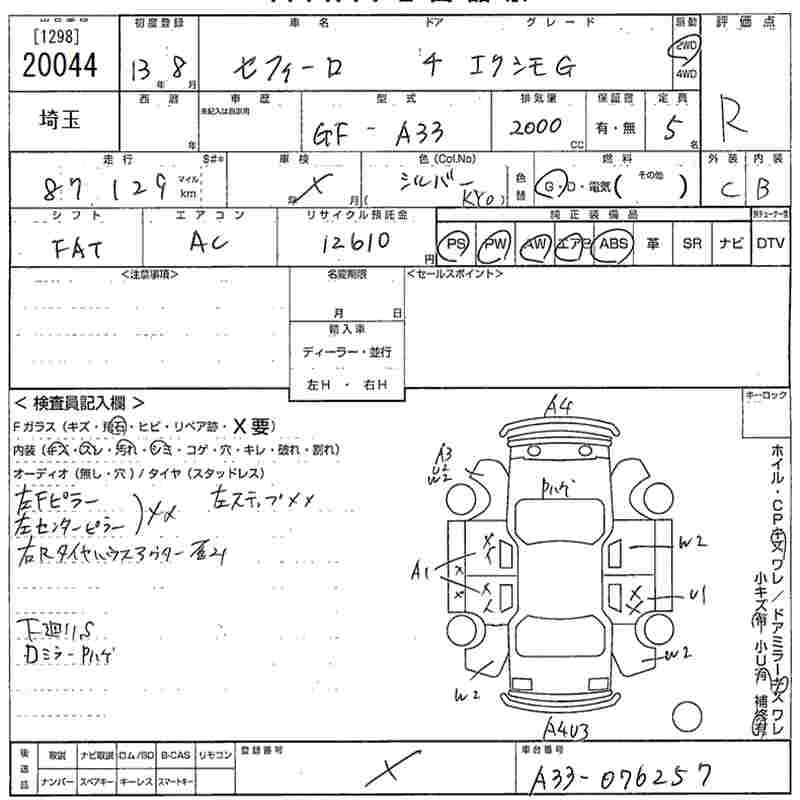 [1298]
20044
初度登録
13年 8月
車名
セフィーロ
ドア
4
グレード
エクシモG
駆動
2WD
4WD
評価点
R
埼玉
西暦
年
車歴
未記入は自家用
型式
GF - A33
排気量
2000 CC
保証書
有・無
定員
5名
走行
87129
マイル
km
S#*
車検
年 X 月
色(Col.No)
シルバー
(KY0)
色替
燃料
G・D・電気( その他 )
外装
C
内装
B
シフト
FAT
エアコン
AC
リサイクル預託金
12610円
純正装備品
PS PW AW エアB ABS 革 SR ナビ
DTV
<注意事項>
名変期限
月 日
輸入車
ディーラー・並行
左H ・ 右H
<セールスポイント>
キーロック
< 検査員記入欄 >
Fガラス(キズ・飛石・ヒビ・リペア跡・X要)
内装(キズ・スレ・汚れ・シミ・コゲ・穴・キレ・破れ・割れ)
オーディオ(無し・穴)/タイヤ(スタッドレス)
左Fピラー
左センターピラー
XX
左ステップXX
右Rタイヤハウスアウター
下廻りS
DミラーPハゲ
A4
A3
U2
W2
Pハゲ
A1
W2
U1
W2
W2
A4U3
ホイル・CPキズワレ/ドアミラーキズワレ
小キズ有 小U有 補修有
後送品
取説 ナビ取説 ロム/SD B-CAS リモコン
ナンバー スペアキー キーレス スマートキー
登録番号
X
車台番号
A33-076257